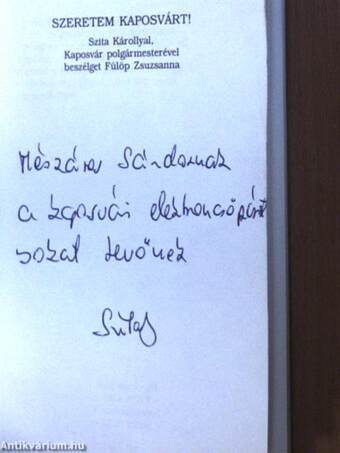 SZERETEM KAPOSVÁRT!
Szita Károllyal,
Kaposvár polgármesterével
beszélget Fülöp Zsuzsanna
Mészáros Sándornak
a kaposvári elektroncsőgyárért
sokat tevőnek
Szita
Antikvárium.hu